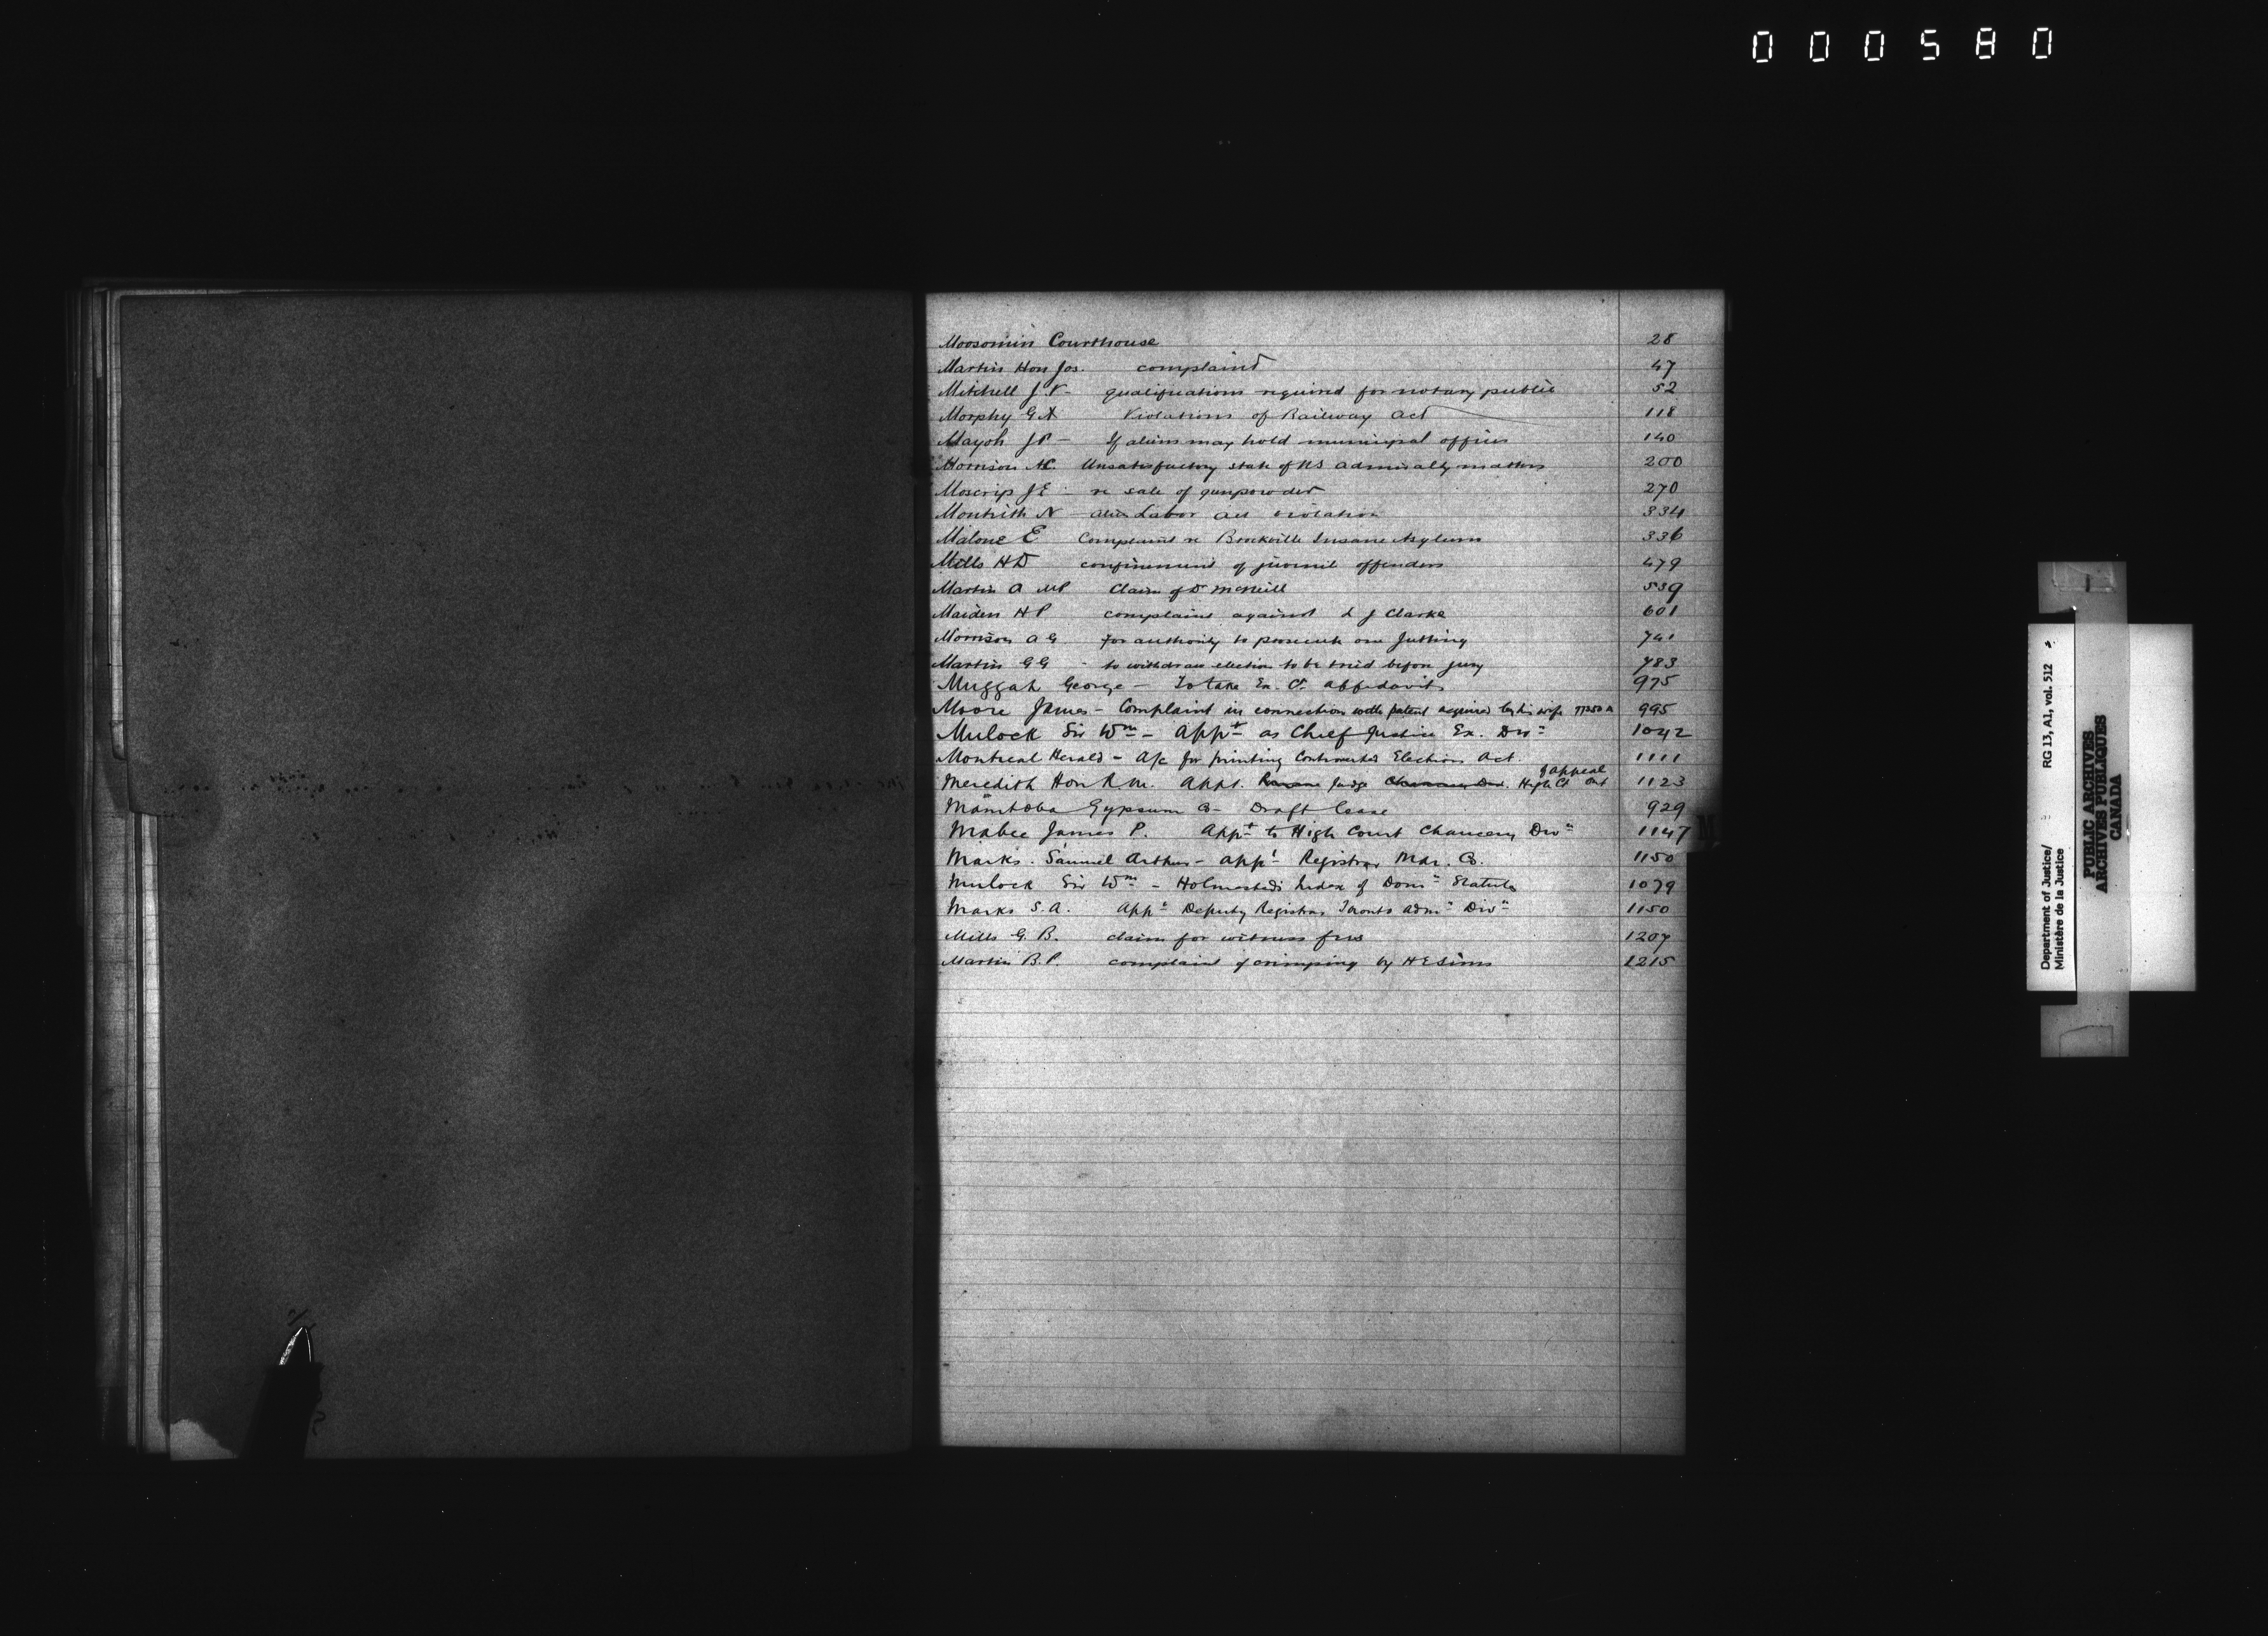 000580
Moosomin Courthouse 28
Martin Hon Jos. complaint 47
Mitchell J. N – qualifications required for notary public 52
Morphy G A Violations of Railway Act 118
Mayoh J P – If aliens may hold municipal offices 140
Morrison A C. Unsatisfactory state of NS admiralty matters 200
Moscrip J E – re sale of gunpowder 270
Montrith N – alien Labor act violation 334
Malone E Complaint re Brockville Insane Asylum 336
Mills H D confinement of juvenile offenders 479
Martin A MP Claim of D McNeill 539
Maiden H P complaint against L J Clarke 601
Morrison A G for authority to prosecute one Jutting 741
Martin G G - to withdraw election to be tried before jury 783
Muggah George – To take Ex. Ct. affidavits 975
Moore James – Complaint in connection with patent acquired by his wife 77250 A 995
Mulock Sir Wm – Appt as Chief Justice Ex. Divn 1042
Montreal Herald – A/c for printing Controverted Elections Act. 1111
of appeal
Meredith Hon R M. Appt. Judge High Ct Ont 1123
Manitoba Gypsum Co – Draft lease 929
Mabee James P. Appt to High Court Chancery Divn 1147
Marks. Samuel Arthur – appt Registrar Mar. Co. 1150
Mulock Sir Wm – Holmested's Index of Domn Statutes 1079
Marks S. A. Appt Deputy Registrar Toronto Admy Divn 1150
Mills G. B. claim for witness fees 1207
Martin B. P. complaint of crimping by H E Sims 1215
M
Department of Justice/ RG 13, A1, vol. 512
Ministère de la Justice
PUBLIC ARCHIVES
ARCHIVES PUBLIQUES
CANADA